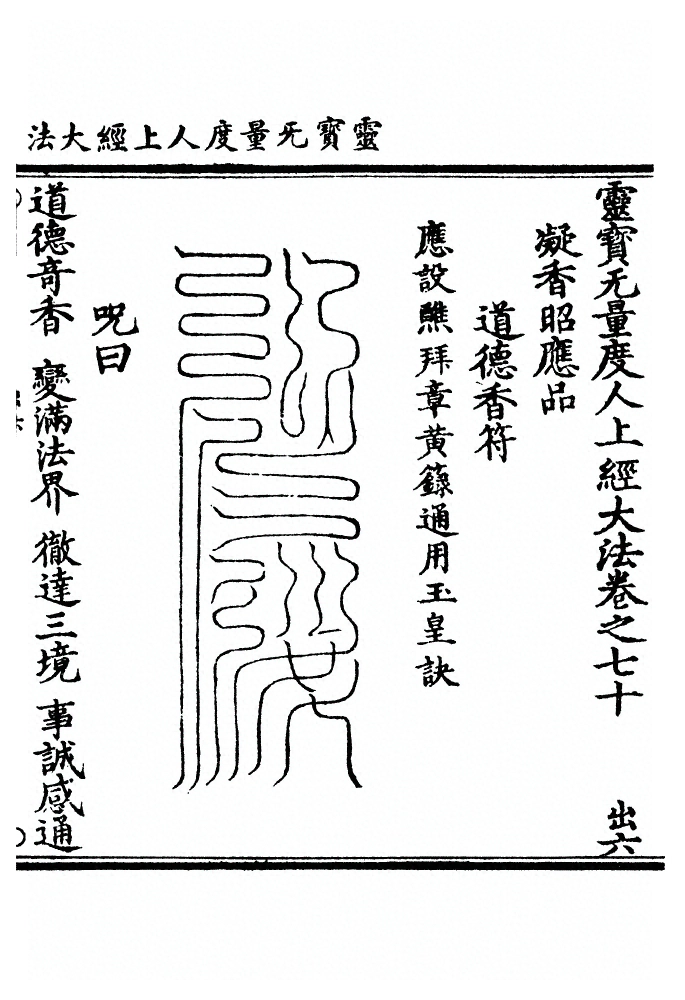 靈寶无量度人上經大法
靈寶无量度人上經大法卷之七十　出六
凝香昭應品
道德香符
應設醮拜章黃籙通用玉皇訣
呪曰
道德奇香　變滿法界　徹達三境　事誠感通